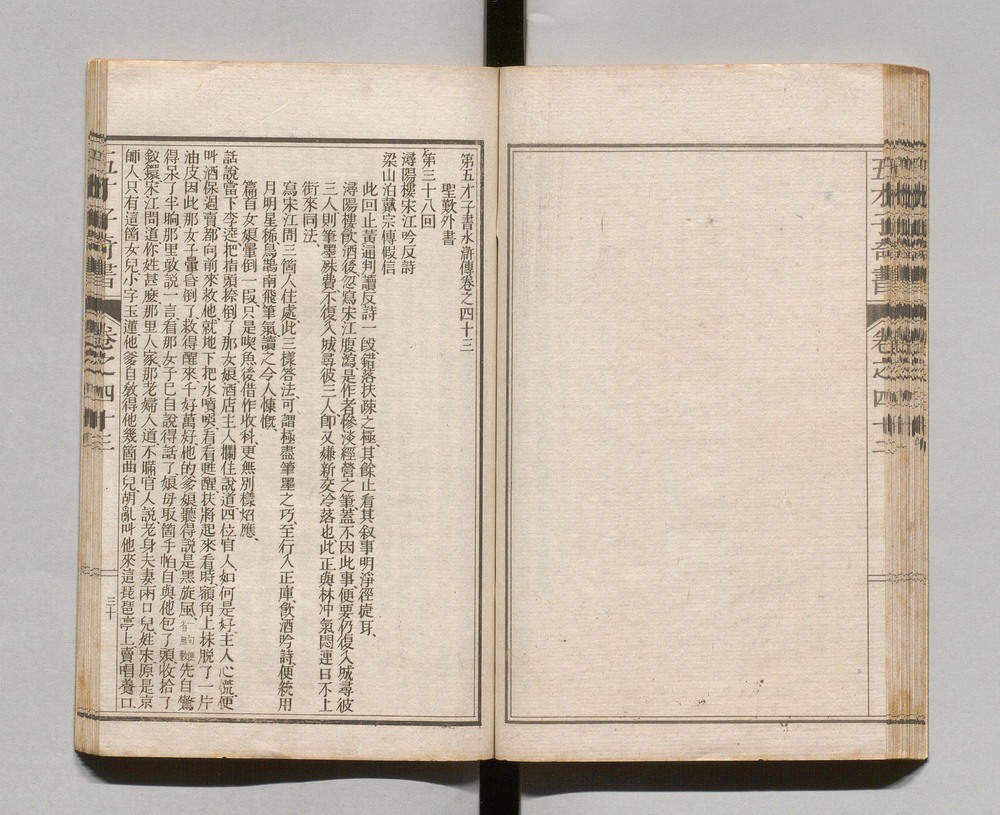 五才子奇書
卷之四十二
第五才子書水滸傳卷之四十三
聖歎外書
第三十八回
潯陽樓宋江吟反詩
梁山泊戴宗傳假信
此回止黃通判讀反詩一段錯落扶疎之極其餘止看其叙事明淨徑捷耳
潯陽樓飲酒後忽寫宋江腹瀉是作者慘淡經營之筆蓋不因此事便要仍復入城尋彼
三人則筆墨殊費不復入城尋彼三人卽又嫌新交冷落也此正與林冲氣悶連日不上
街來同法
寫宋江問三箇人住處此三樣答法可謂極盡筆墨之巧至行入正庫飲酒吟詩便純用
月明星稀烏鵲南飛筆氣讀之令人慷慨
篇首女娘暈倒一段只是喫魚後借作收科更無別樣炤應
話說當下李逵把指頭捺倒了那女娘酒店主人攔住說道四位官人如何是好主人心慌便
叫酒保過賣都向前來救他就地下把水噴噀看看甦醒扶將起來看時額角上抹脫了一片
油皮因此那女子暈昏倒了救得醒來千好萬好他的爹娘聽得說是黑旋風先自驚
得呆了半晌那里敢說一言看那女子已自說得話了娘母取箇手帕自與他包了頭收拾了
釵鐶宋江問道你姓甚麽那里人家那老婦人道不瞞官人說老身夫妻兩口兒姓宋原是京
師人只有這箇女兒小字玉蓮他爹自敎得他幾箇曲兒胡亂叫他來這琵琶亭上賣唱養口
五才子奇書
卷之四十三
三十